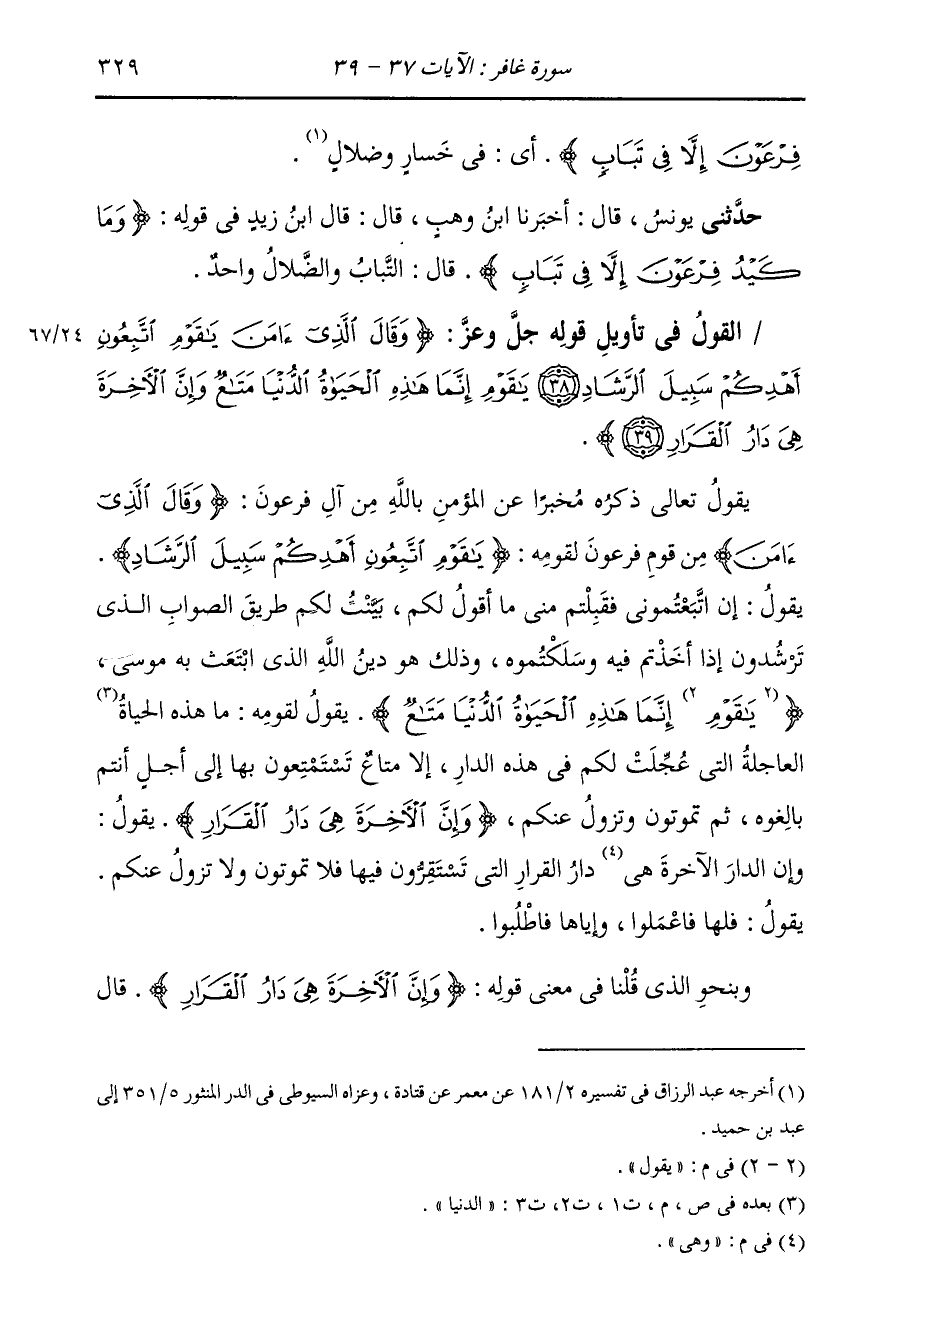 سورة غافر : الآيات ٣٧ - ٣٩ ٣٢٩
فِرْعَوْنَ إِلَّا فِي تَبَابٍ ﴾ . أى : فى خَسارٍ وضلالٍ(١) .
حدَّثنى يونسُ ، قال : أخبَرنا ابنُ وهبٍ ، قال : قال ابنُ زيدٍ فى قولِه : ﴿ وَمَا
كَيْدُ فِرْعَوْنَ إِلَّا فِي تَبَابٍ ﴾ . قال : التَّبابُ والضَّلالُ واحدٌ .
/ القولُ فى تأويلِ قولِه جلَّ وعزَّ : ﴿ وَقَالَ ٱلَّذِىٓ ءَامَنَ يَٰقَوْمِ ٱتَّبِعُونِ ٦٧/٢٤
أَهْدِكُمْ سَبِيلَ ٱلرَّشَادِ ٣٨ يَٰقَوْمِ إِنَّمَا هَٰذِهِ ٱلْحَيَوٰةُ ٱلدُّنْيَا مَتَٰعٌ وَإِنَّ ٱلْأَخِرَةَ
هِىَ دَارُ ٱلْقَرَارِ ٣٩ ﴾ .
يقولُ تعالى ذكرُه مُخبرًا عن المؤمنِ باللَّهِ مِن آلِ فرعونَ : ﴿ وَقَالَ ٱلَّذِىٓ
ءَامَنَ ﴾ مِن قومِ فرعونَ لقومِه : ﴿ يَٰقَوْمِ ٱتَّبِعُونِ أَهْدِكُمْ سَبِيلَ ٱلرَّشَادِ ﴾ .
يقولُ : إن اتَّبَعْتُمونى فقَبِلْتم منى ما أقولُ لكم ، بَيَّنْتُ لكم طريقَ الصوابِ الـذى
تَرْشُدون إذا أخَذْتم فيه وسَلَكْتُموه ، وذلك هو دينُ اللَّهِ الذى ابْتَعَث به موسى ،
﴿ (٢ يَٰقَوْمِ ٢) إِنَّمَا هَٰذِهِ ٱلْحَيَوٰةُ ٱلدُّنْيَا مَتَٰعٌ ﴾ . يقولُ لقومِه : ما هذه الحياةُ(٣)
العاجلةُ التى عُجِّلَتْ لكم فى هذه الدارِ ، إلا متاعٌ تَسْتَمْتِعون بها إلى أجـلٍ أنتم
بالِغوه ، ثم تموتون وتزولُ عنكم ، ﴿ وَإِنَّ ٱلْأَخِرَةَ هِىَ دَارُ ٱلْقَرَارِ ﴾ . يقولُ :
وإن الدارَ الآخرةَ هى(٤) دارُ القرارِ التى تَسْتَقِرُّون فيها فلا تموتون ولا تزولُ عنكم .
يقولُ : فلها فاعْمَلوا ، وإياها فاطْلُبوا .
وبنحوِ الذى قُلْنا فى معنى قولِه : ﴿ وَإِنَّ ٱلْأَخِرَةَ هِىَ دَارُ ٱلْقَرَارِ ﴾ . قال
(١) أخرجه عبد الرزاق فى تفسيره ١٨١/٢ عن معمر عن قتادة ، وعزاه السيوطى فى الدر المنثور ٣٥١/٥ إلى
عبد بن حميد .
(٢ - ٢) فى م : « يقول » .
(٣) بعده فى ص ، م ، ت١ ، ت٢، ت٣ : « الدنيا » .
(٤) فى م : « وهى » .